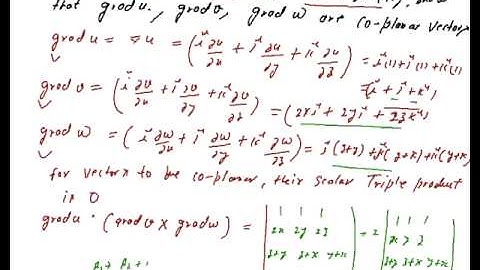 that grad u, grad v, grad w are co-planar vectors
grad u = ∇u = (i ∂u/∂x + j ∂u/∂y + k ∂u/∂z) = i(1) + j(1) + k(1)
= (i + j + k)
grad v = (i ∂v/∂x + j ∂v/∂y + k ∂v/∂z) = (2xi + 2yj + 2zk)
grad w = (i ∂w/∂x + j ∂w/∂y + k ∂w/∂z) = i(z+y) + j(z+x) + k(y+x)
for vectors to be co-planar, their scalar Triple product
is 0
grad u · (grad v × grad w) = | 1 1 1 | = 2 | 1 1 1 |
| 2x 2y 2z | | x y z |
| z+y z+x y+x | | z+y z+x y+x |
R₁ + R₂ +